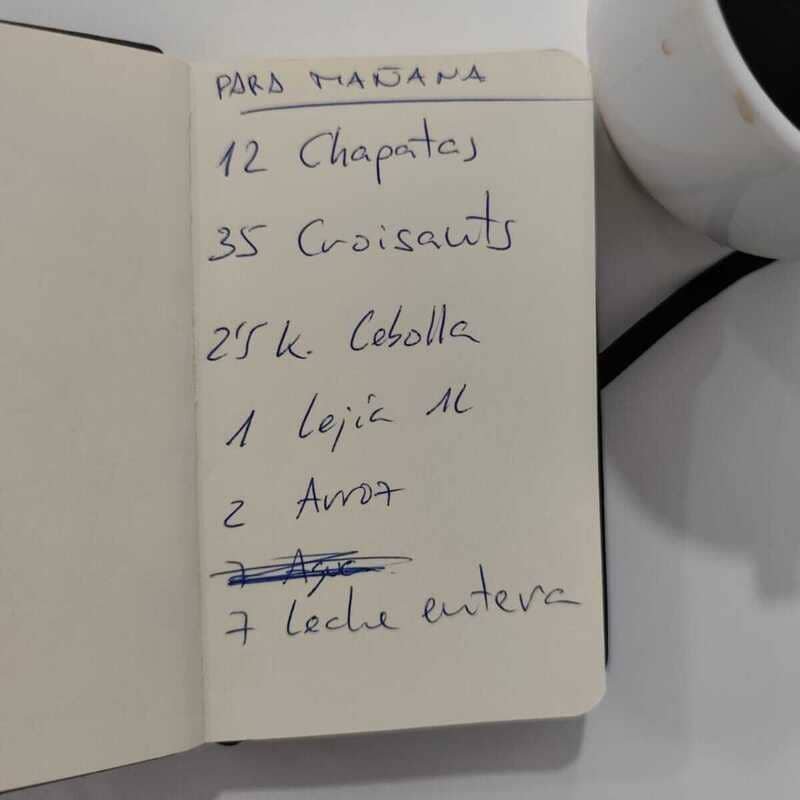 PARA MAÑANA
12 Chapatas
35 Croisauts
2'5 k. Cebolla
1 Lejía 1L
2 Arroz
7 Agua
7 Leche entera